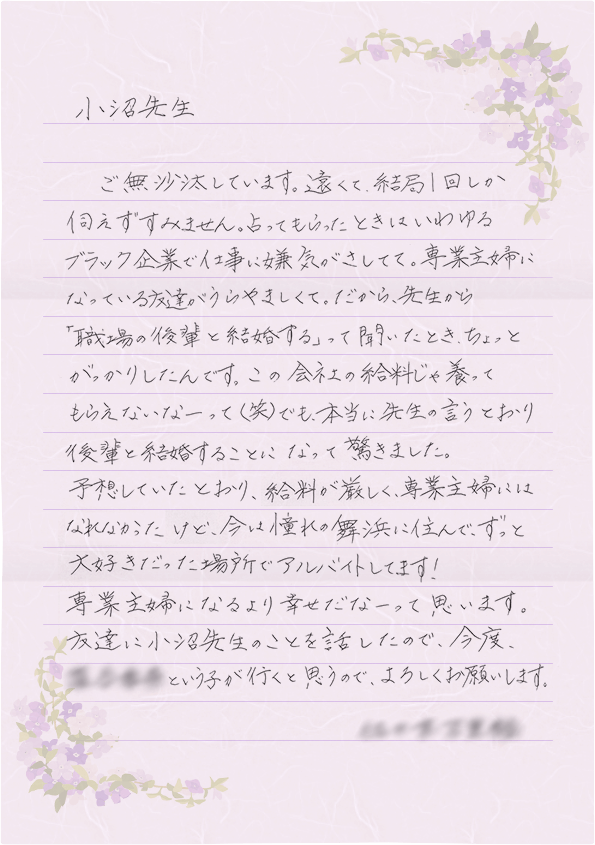 小沼先生
ご無沙汰しています。遠くて、結局1回しか
伺えずすみません。占ってもらったときはいわゆる
ブラック企業で仕事に嫌気がさしてて。専業主婦に
なっている友達がうらやましくて。だから、先生から
「職場の後輩と結婚する」って聞いたとき、ちょっと
がっかりしたんです。この会社の給料じゃ養って
もらえないなーって(笑)でも、本当に先生の言うとおり
後輩と結婚することになって驚きました。
予想していたとおり、給料が厳しく、専業主婦には
なれなかったけど、今は憧れの舞浜に住んで、ずっと
大好きだった場所でアルバイトしてます!
専業主婦になるより幸せだなーって思います。
友達に小沼先生のことを話したので、今度、
という子が行くと思うので、よろしくお願いします。